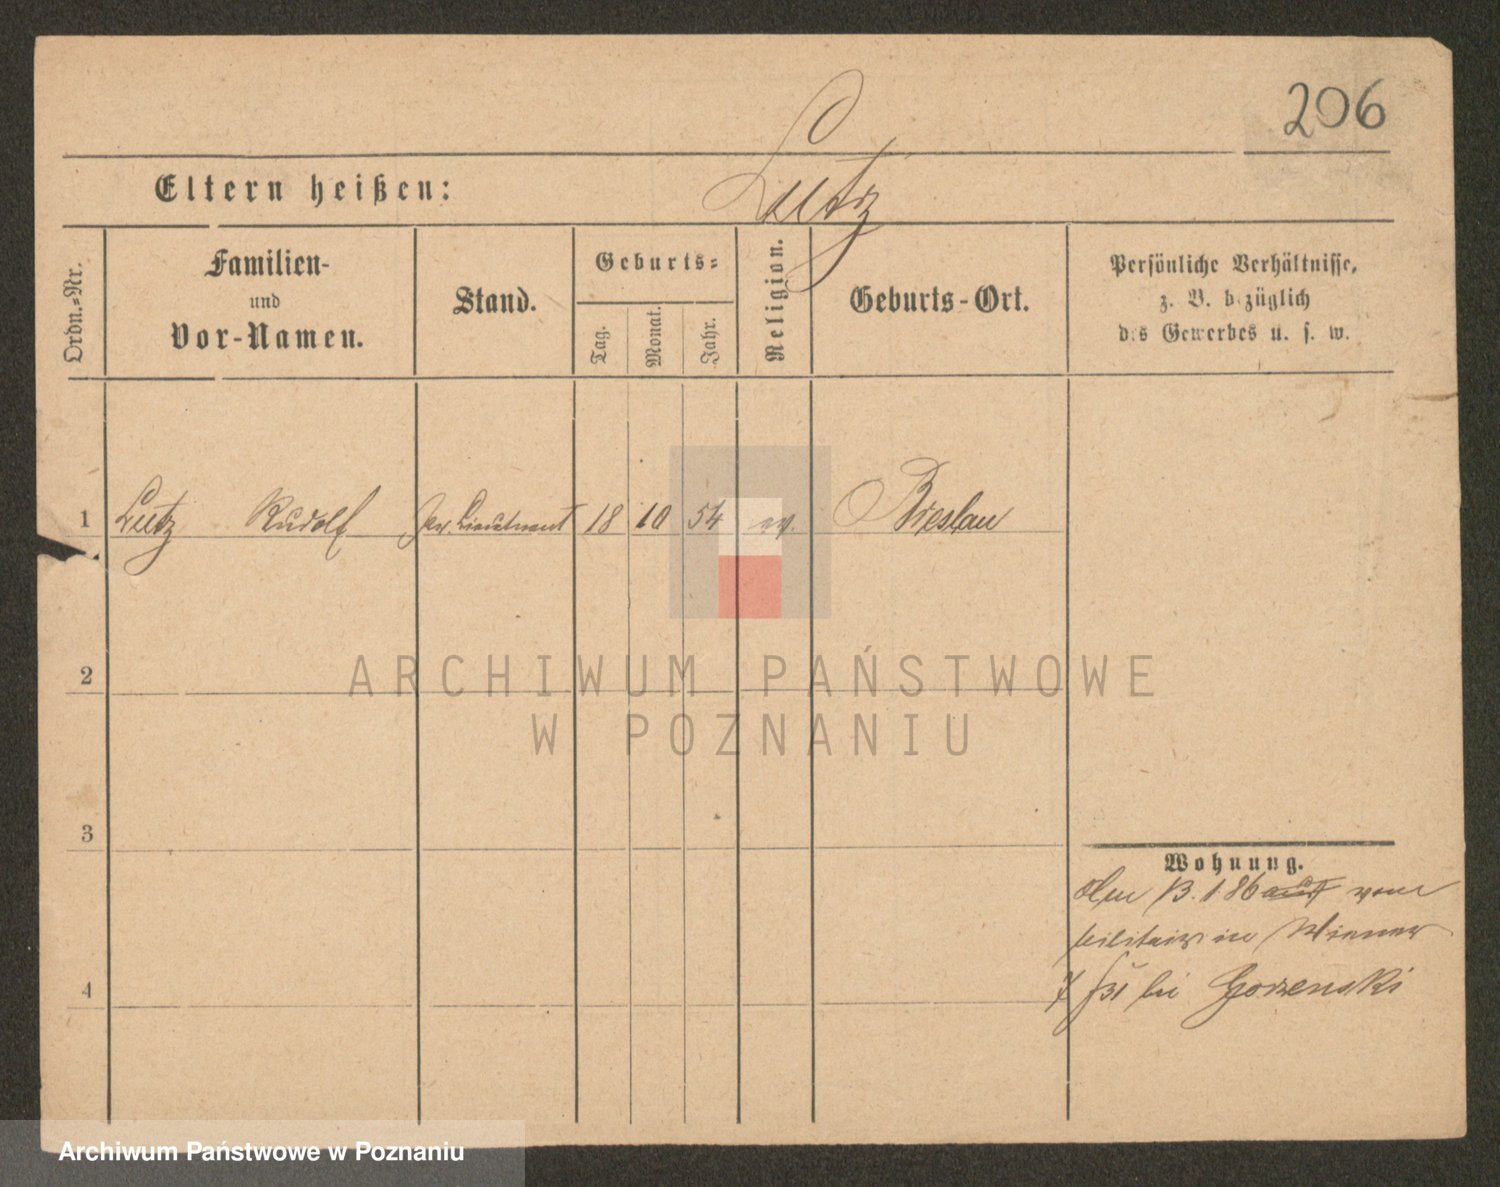 206
Lutz
Eltern heißen:
Ordn.-Nr.
Familien-
und
Vor-Namen.
Stand.
Geburts-
Tag.
Monat.
Jahr.
Religion.
Geburts-Ort.
Persönliche Verhältnisse,
z. B. bezüglich
des Gewerbes u. s. w.
1 Lutz Rudolf Lieutenant 18 10 54 ev. Breslau
2
ARCHIWUM PAŃSTWOWE
W POZNANIU
3
4
Wohnung.
1.86 auf von
in
bei Gorzenski
Archiwum Państwowe w Poznaniu